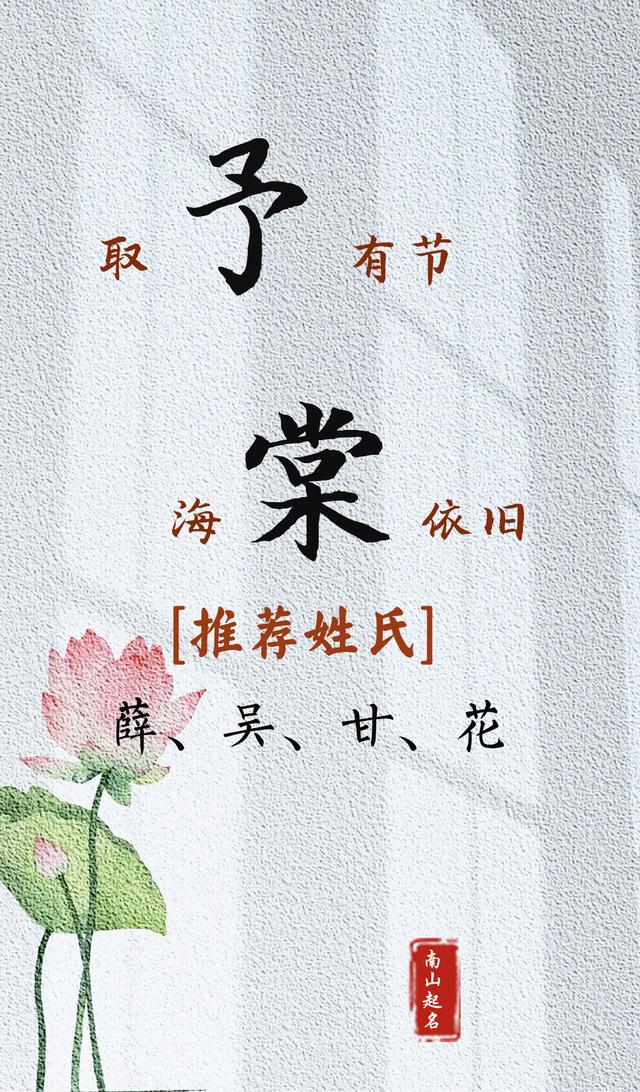 取予有节
海棠依旧
[推荐姓氏]
薛、吴、甘、花
南山起名